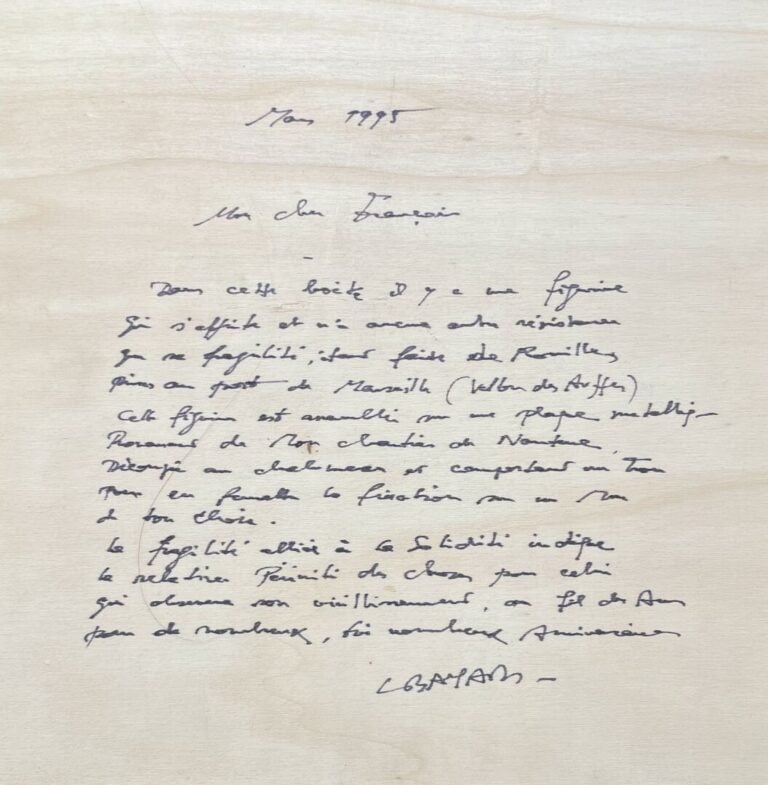 Mars 1995
Mon cher François
Dans cette boîte il y a une figurine
qui s'effrite et n'a aucune autre résistance
que sa fragilité, étant faite de Rouilles
prises au port de Marseille (Vallon des Auffes)
Cette figurine est assemblée sur une plaque métallique
Provenant de mon chantier de Nanterre
Découpé au chalumeau et comportant un Trou
Pour en permettre la fixation sur un Mur
de ton choix.
La fragilité alliée à la Solidité indique
la relative Pérénité des choses pour celui
qui observe son vieillissement, au fil des Ans
pour de nombreux, très nombreux Anniversaires